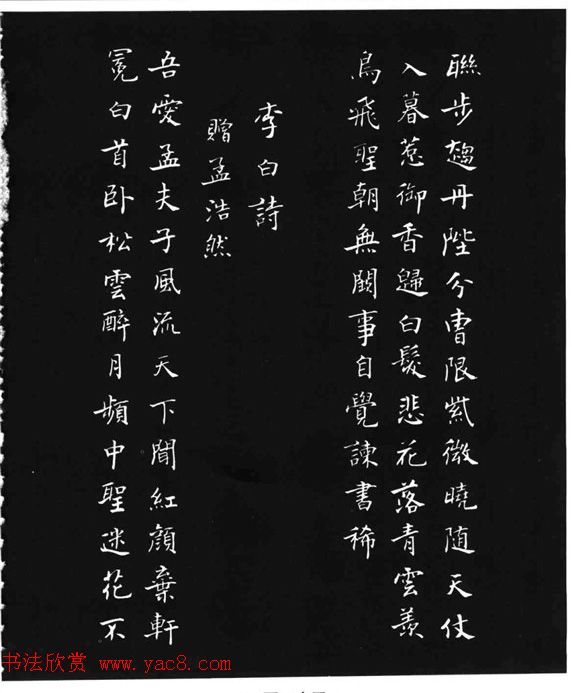 聯步趨丹陛分曹限紫微曉随天仗
入暮惹御香歸白髮悲花落青雲羨
鳥飛聖朝無闕事自覺諫書稀
李白詩
贈孟浩然
吾愛孟夫子風流天下聞紅顏棄軒
冕白首卧松雲醉月頻中聖迷花不
书法欣赏 www.yac8.com